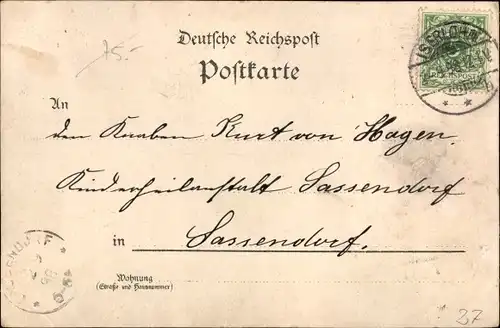 75.-
Deutsche Reichspost
Postkarte
ISERLOHN
An
den Knaben Kurt von Hagen,
Kinderheilanstalt Sassendorf
in Sassendorf.
Wohnung
(Straße und Hausnummer)
37